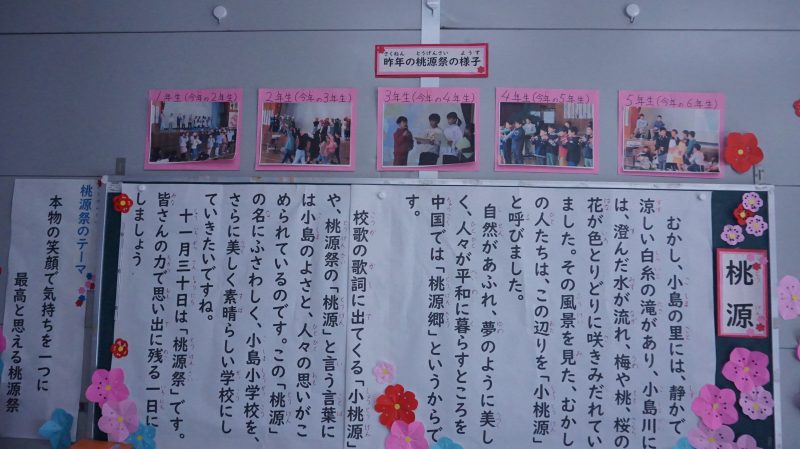 昨年の桃源祭の様子
1年生(今年の2年生)
2年生(今年の3年生)
3年生(今年の4年生)
4年生(今年の5年生)
5年生(今年の6年生)
桃源
むかし、小島の里には、静かで
涼しい白糸の滝があり、小島川に
は、澄んだ水が流れ、梅や桃、桜の
花が色とりどりに咲きみだれてい
ました。その風景を見た、むかし
の人たちは、この辺りを「小桃源」
と呼びました。
自然があふれ、夢のように美し
く、人々が平和に暮らすところを
中国では「桃源郷」というからで
す。
校歌の歌詞に出てくる「小桃源」
や、桃源祭の「桃源」と言う言葉に
は小島のよさと、人々の思いがこ
められているのです。この「桃源」
の名にふさわしく、小島小学校を、
さらに美しく素晴らしい学校にし
ていきたいですね。
十一月三十日は「桃源祭」です。
皆さんの力で思い出に残る一日に
しましょう
桃源祭のテーマ
本物の笑顔で気持ちを一つに
最高と思える桃源祭